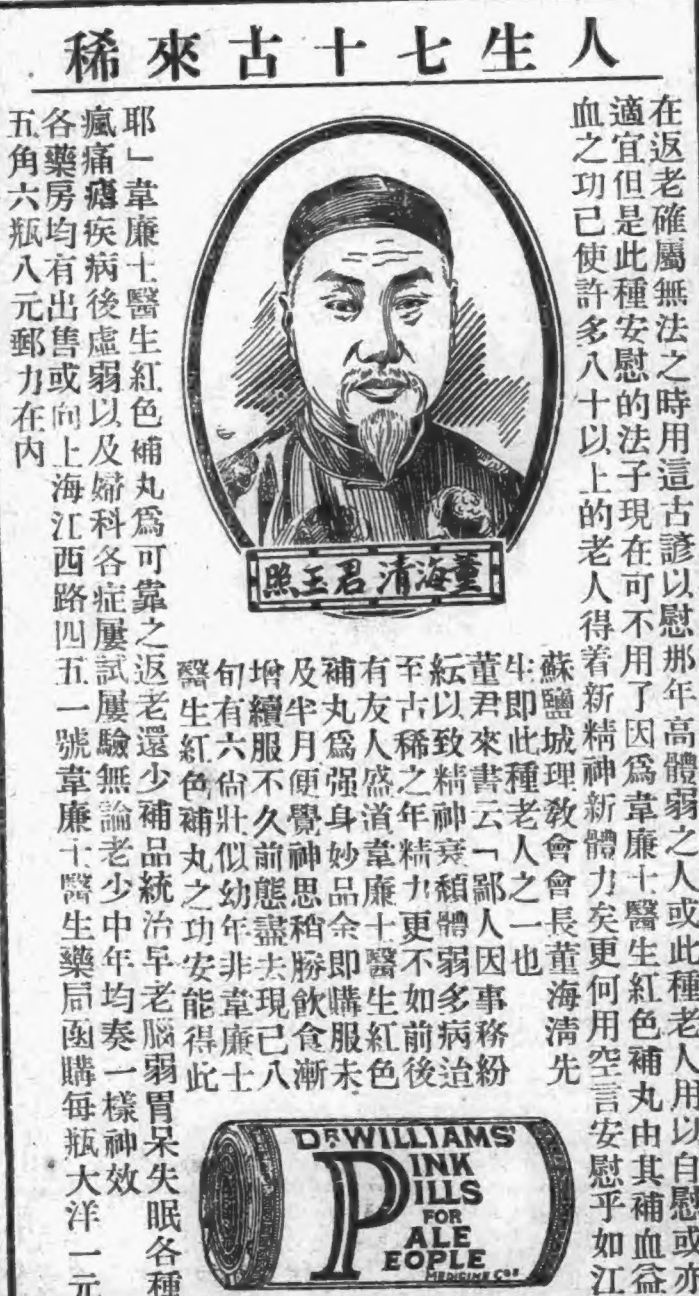 人生七十古來稀
在返老確屬無法之時用這古諺以慰那年高體弱之人或此種老人用以自慰或亦
適宜但是此種安慰的法子現在可不用了因爲韋廉士醫生紅色補丸由其補血益
血之功已使許多八十以上的老人得着新精神新體力矣更何用空言安慰乎如江
蘇鹽城理教會會長董海清先
生即此種老人之一也
董君來書云「鄙人因事務紛
紜以致精神衰頹體弱多病迨
至古稀之年精力更不如前後
有友人盛道韋廉士醫生紅色
補丸爲强身妙品余即購服未
及半月便覺神思稍勝飲食漸
增續服不久前態盡去現已八
旬有六尙壯似幼年非韋廉士
醫生紅色補丸之功安能得此
耶」韋廉士醫生紅色補丸爲可靠之返老還少補品統治早老腦弱胃呆失眠各種
瘋痛瘧疾病後虛弱以及婦科各症屢試屢驗無論老少中年均奏一樣神效
各藥房均有出售或向上海江西路四五一號韋廉士醫生藥局函購每瓶大洋一元
五角六瓶八元郵力在內
董海清君玉照
DR. WILLIAMS'
PINK
PILLS
FOR
PALE
PEOPLE
MEDICINE Co.